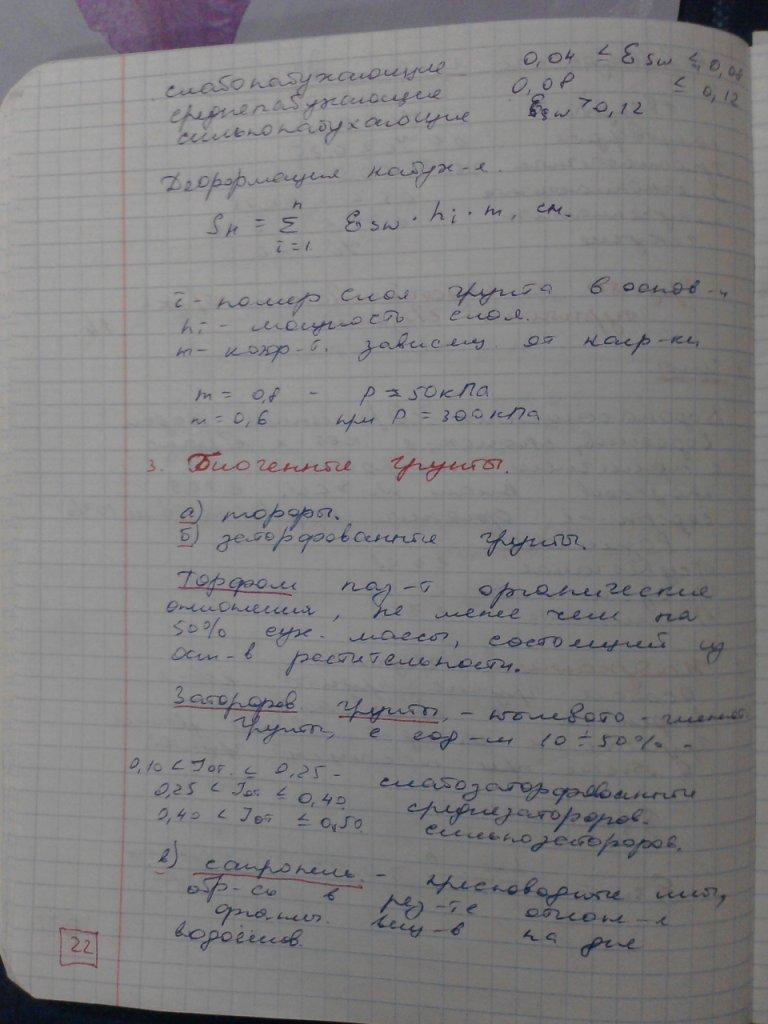 слабонабухающие 0,04 ≤ Ɛsw ≤ 0,08
средненабухающие 0,08 ≤ 0,12
сильнонабухающие Ɛsw > 0,12
Деформация набух-я.
Sн = n Σ i=1 Ɛsw · hi · m, см.
i - номер слоя грунта в основ-и
hi - мощность слоя.
m - коэф-т. зависящ. от нагр-ки
m = 0,8 - P = 50кПа
m = 0,6 при P = 300кПа
3. Биогенные грунты.
а) торфы.
б) заторфованные грунты.
Торфом наз-т органические
отложения, не менее чем на
50% сух. массы, состоящий из
ост-в растительности.
Заторфов грунты, - пылевато-глинист.
грунты, с сод-м 10÷50% -
0,10 < Jот. ≤ 0,25 - слабозаторфованные
0,25 < Jот ≤ 0,40 среднезаторфов.
0,40 < Jот ≤ 0,50 сильнозаторфов.
в) сапропель - пресноводные илы,
обр-ся в рез-те отлож-я
органич. вещ-в на дне
водоёмов.
22